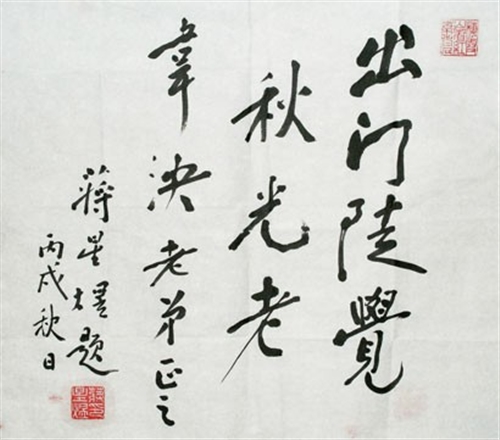 出门陡覺
秋光老
韋泱老弟正之
蔣星煜題
丙戌秋日